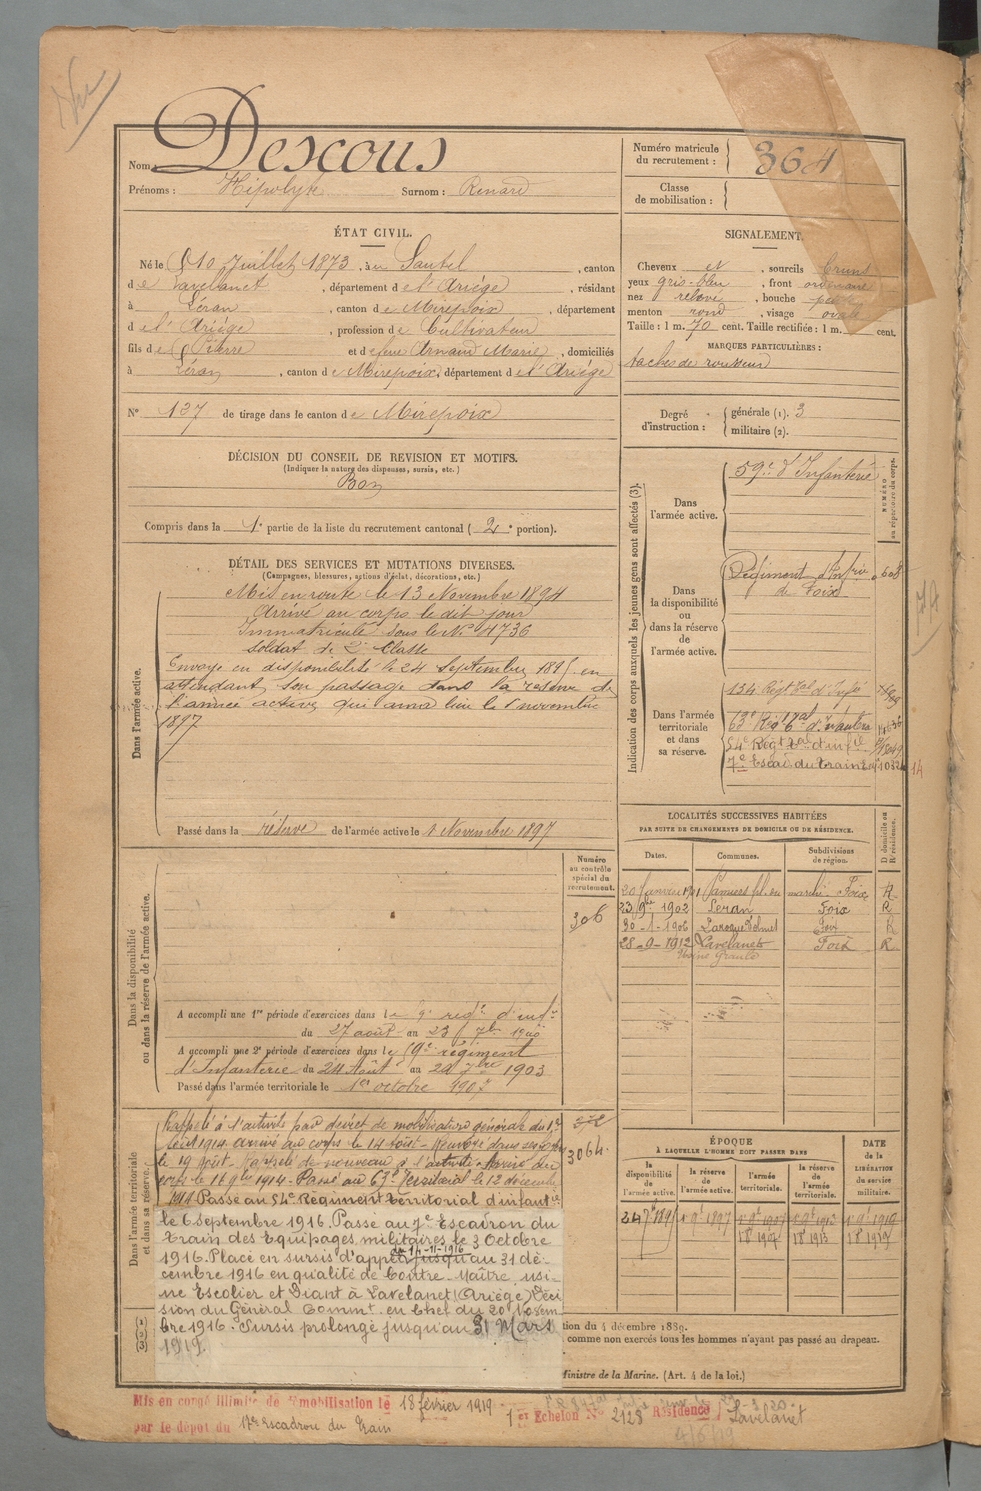 Nom : Descous
Prénoms : Hipolyte Surnom : Renard
Numéro matricule du recrutement : 364
Classe de mobilisation :
ÉTAT CIVIL.
Né le 10 Juillet 1873, à Sautel, canton
de Lavelanet, département de l'Ariége, résidant
à Léran, canton de Mirepoix, département
de l'Ariége, profession de Cultivateur
fils de Pierre et de feue Arnaud Marie, domiciliés
à Léran, canton de Mirepoix, département de l'Ariége
N° 137 de tirage dans le canton de Mirepoix
SIGNALEMENT
Cheveux et, sourcils bruns
yeux gris-bleu, front ordinaire
nez relevé, bouche petite
menton rond, visage ovale
Taille : 1 m. 70 cent. Taille rectifiée : 1 m. cent.
MARQUES PARTICULIÈRES :
taches de rousseur
Degré d'instruction : générale (1). 3
militaire (2).
DÉCISION DU CONSEIL DE REVISION ET MOTIFS.
(Indiquer la nature des dispenses, sursis, etc.)
Bon
Compris dans la 1e partie de la liste du recrutement cantonal ( 2e portion).
DÉTAIL DES SERVICES ET MUTATIONS DIVERSES.
(Campagnes, blessures, actions d'éclat, décorations, etc.)
Dans l'armée active.
Mis en route le 13 Novembre 1894
Arrivé au corps le dit jour
Immatriculé sous le N° 4736
soldat de 2e Classe
Envoyé en disponibilité le 24 Septembre 1895 en
attendant son passage dans la réserve de
l'armée active, qui aura lieu le 1 novembre
1897
Passé dans la réserve de l'armée active le 1 Novembre 1897
Indication des corps auxquels les jeunes gens sont affectés (3).
NUMÉRO au répertoire du corps.
Dans l'armée active.
59e d'Infanterie
Dans la disponibilité ou dans la réserve de l'armée active.
Régiment d'Infrie
de Foix
Dans l'armée territoriale et dans sa réserve.
134 Régt tal d'Infie
63e Régt tal d'Infanterie
54e Régt tal d'infie
7e Escad. du Train
LOCALITÉS SUCCESSIVES HABITÉES
PAR SUITE DE CHANGEMENTS DE DOMICILE OU DE RÉSIDENCE.
Dates. Communes. Subdivisions de région. D domicile ou R résidence.
20 Janvier 1901 Pamiers pl. du marché Foix R
23 9bre 1902 Leran Foix R
30-1-1906 Laroque d'Olmes Foix R
28-9-1912 Lavelanet Foix R
Dans la disponibilité ou dans la réserve de l'armée active.
Numéro au contrôle spécial du recrutement.
306
A accompli une 1re période d'exercices dans le 9e régt d'inf
du 27 août au 23 7bre 1900
A accompli une 2e période d'exercices dans le 59e régiment
d'Infanterie du 24 Août au 20 7bre 1903
Passé dans l'armée territoriale le 1er octobre 1907
Dans l'armée territoriale et dans sa réserve.
Rappelé à l'activité par décret de mobilisation générale du 1er
Août 1914 arrivé au corps le 14 Août - Renvoyé dans ses foyers
le 19 Août - Rappelé de nouveau à l'activité - Arrivé au
corps le 9bre 1914 - Passé au 63e Territorial le 12 décembre
1914 Passé au 54e Régiment territorial d'infanterie
le 6 septembre 1916. Passé au 7e Escadron du
train des Equipages militaires le 3 Octobre
1916. Placé en sursis d'appel du 14-11-1916 jusqu'au 31 dé-
cembre 1916 en qualité de Contre-Maître, usi-
ne Escolier et Diant à Lavelanet (Ariége) Déci
sion du Général Commt. en Chef du 20 Novem
bre 1916. Sursis prolongé jusqu'au 31 Mars
1919.
3064
ÉPOQUE
À LAQUELLE L'HOMME DOIT PASSER DANS
la disponibilité de l'armée active. la réserve de l'armée active. l'armée territoriale. la réserve de l'armée territoriale.
DATE de la LIBÉRATION du service militaire.
24 7bre 1895 1 9bre 1897 1 9bre 1907 1 9bre 1913 1 9bre 1919
tion du 4 décembre 1889.
comme non exercés tous les hommes n'ayant pas passé au drapeau.
Ministre de la Marine. (Art. 4 de la loi.)
Mis en congé illimité de démobilisation le 18 février 1919
par le dépôt du 17e Escadron du Train
1er Echelon N° 2128 Résidence Lavelanet